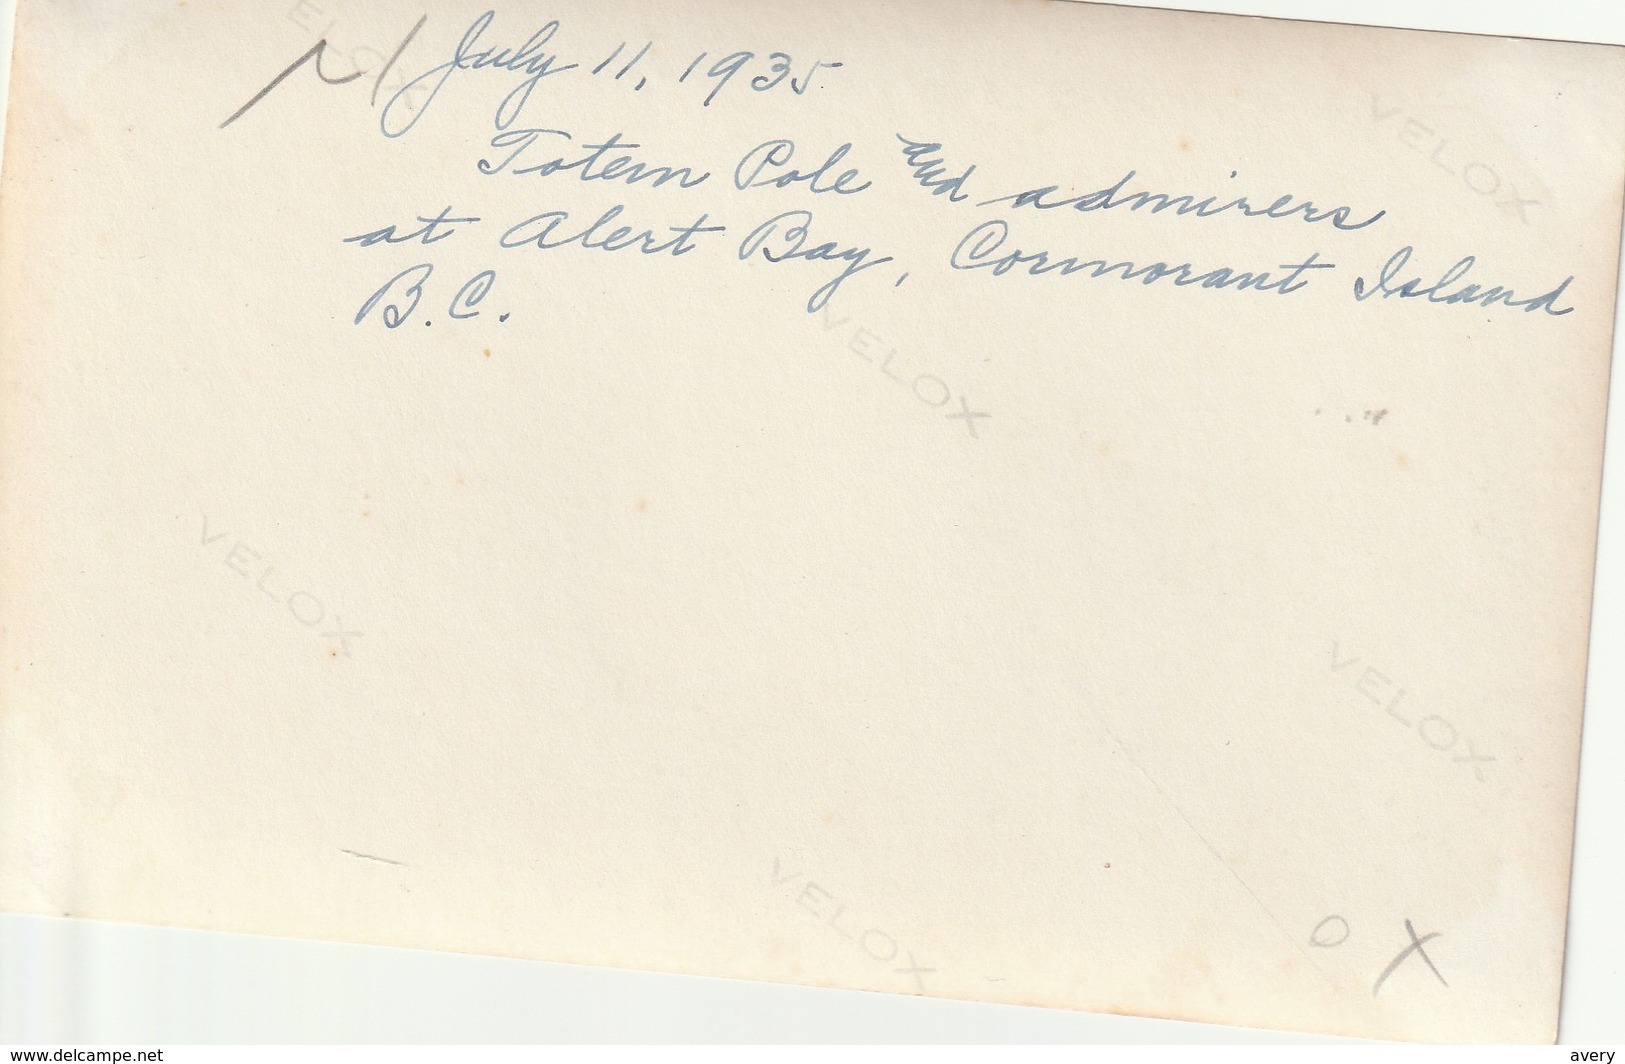 July 11, 1935
Totem Pole and admirers
at Alert Bay, Cormorant Island
B.C.
VELOX
VELOX
VELOX
VELOX
VELOX
VELOX
O X
www.delcampe.net
avery